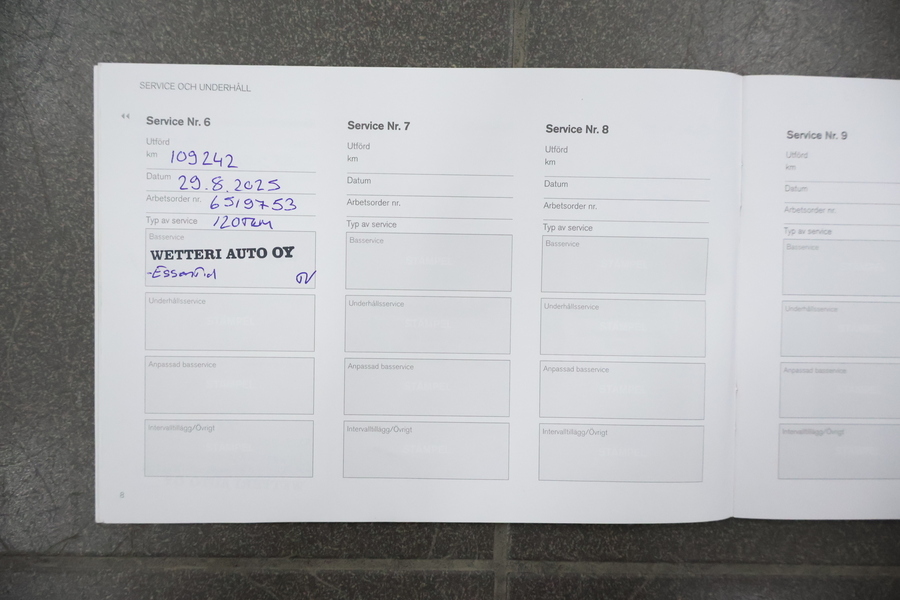 SERVICE OCH UNDERHÅLL
Service Nr. 6
Utförd
km 109242
Datum 29.8.2025
Arbetsorder nr. 6519753
Typ av service 120Tkm
Basservice
WETTERI AUTO OY
-Essential
Underhållsservice
Anpassad basservice
Intervalltillägg/Övrigt
6
Service Nr. 7
Utförd
km
Datum
Arbetsorder nr.
Typ av service
Basservice
Underhållsservice
Anpassad basservice
Intervalltillägg/Övrigt
Service Nr. 8
Utförd
km
Datum
Arbetsorder nr.
Typ av service
Basservice
Underhållsservice
Anpassad basservice
Intervalltillägg/Övrigt
Service Nr. 9
Utförd
km
Datum
Arbetsorder nr.
Typ av service
Basservice
Underhållsservice
Anpassad basservice
Intervalltillägg/Övrigt